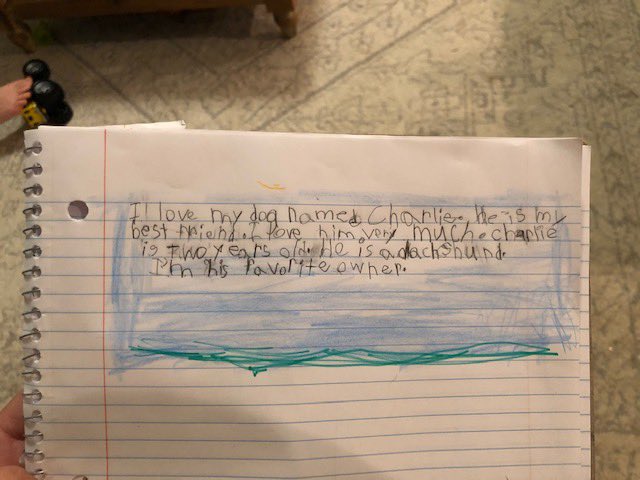 I love my dog named Charlie. He is my
best friend. I love him very much. charlie
is two years old. He is a dachshund.
I'm his favorite owner.